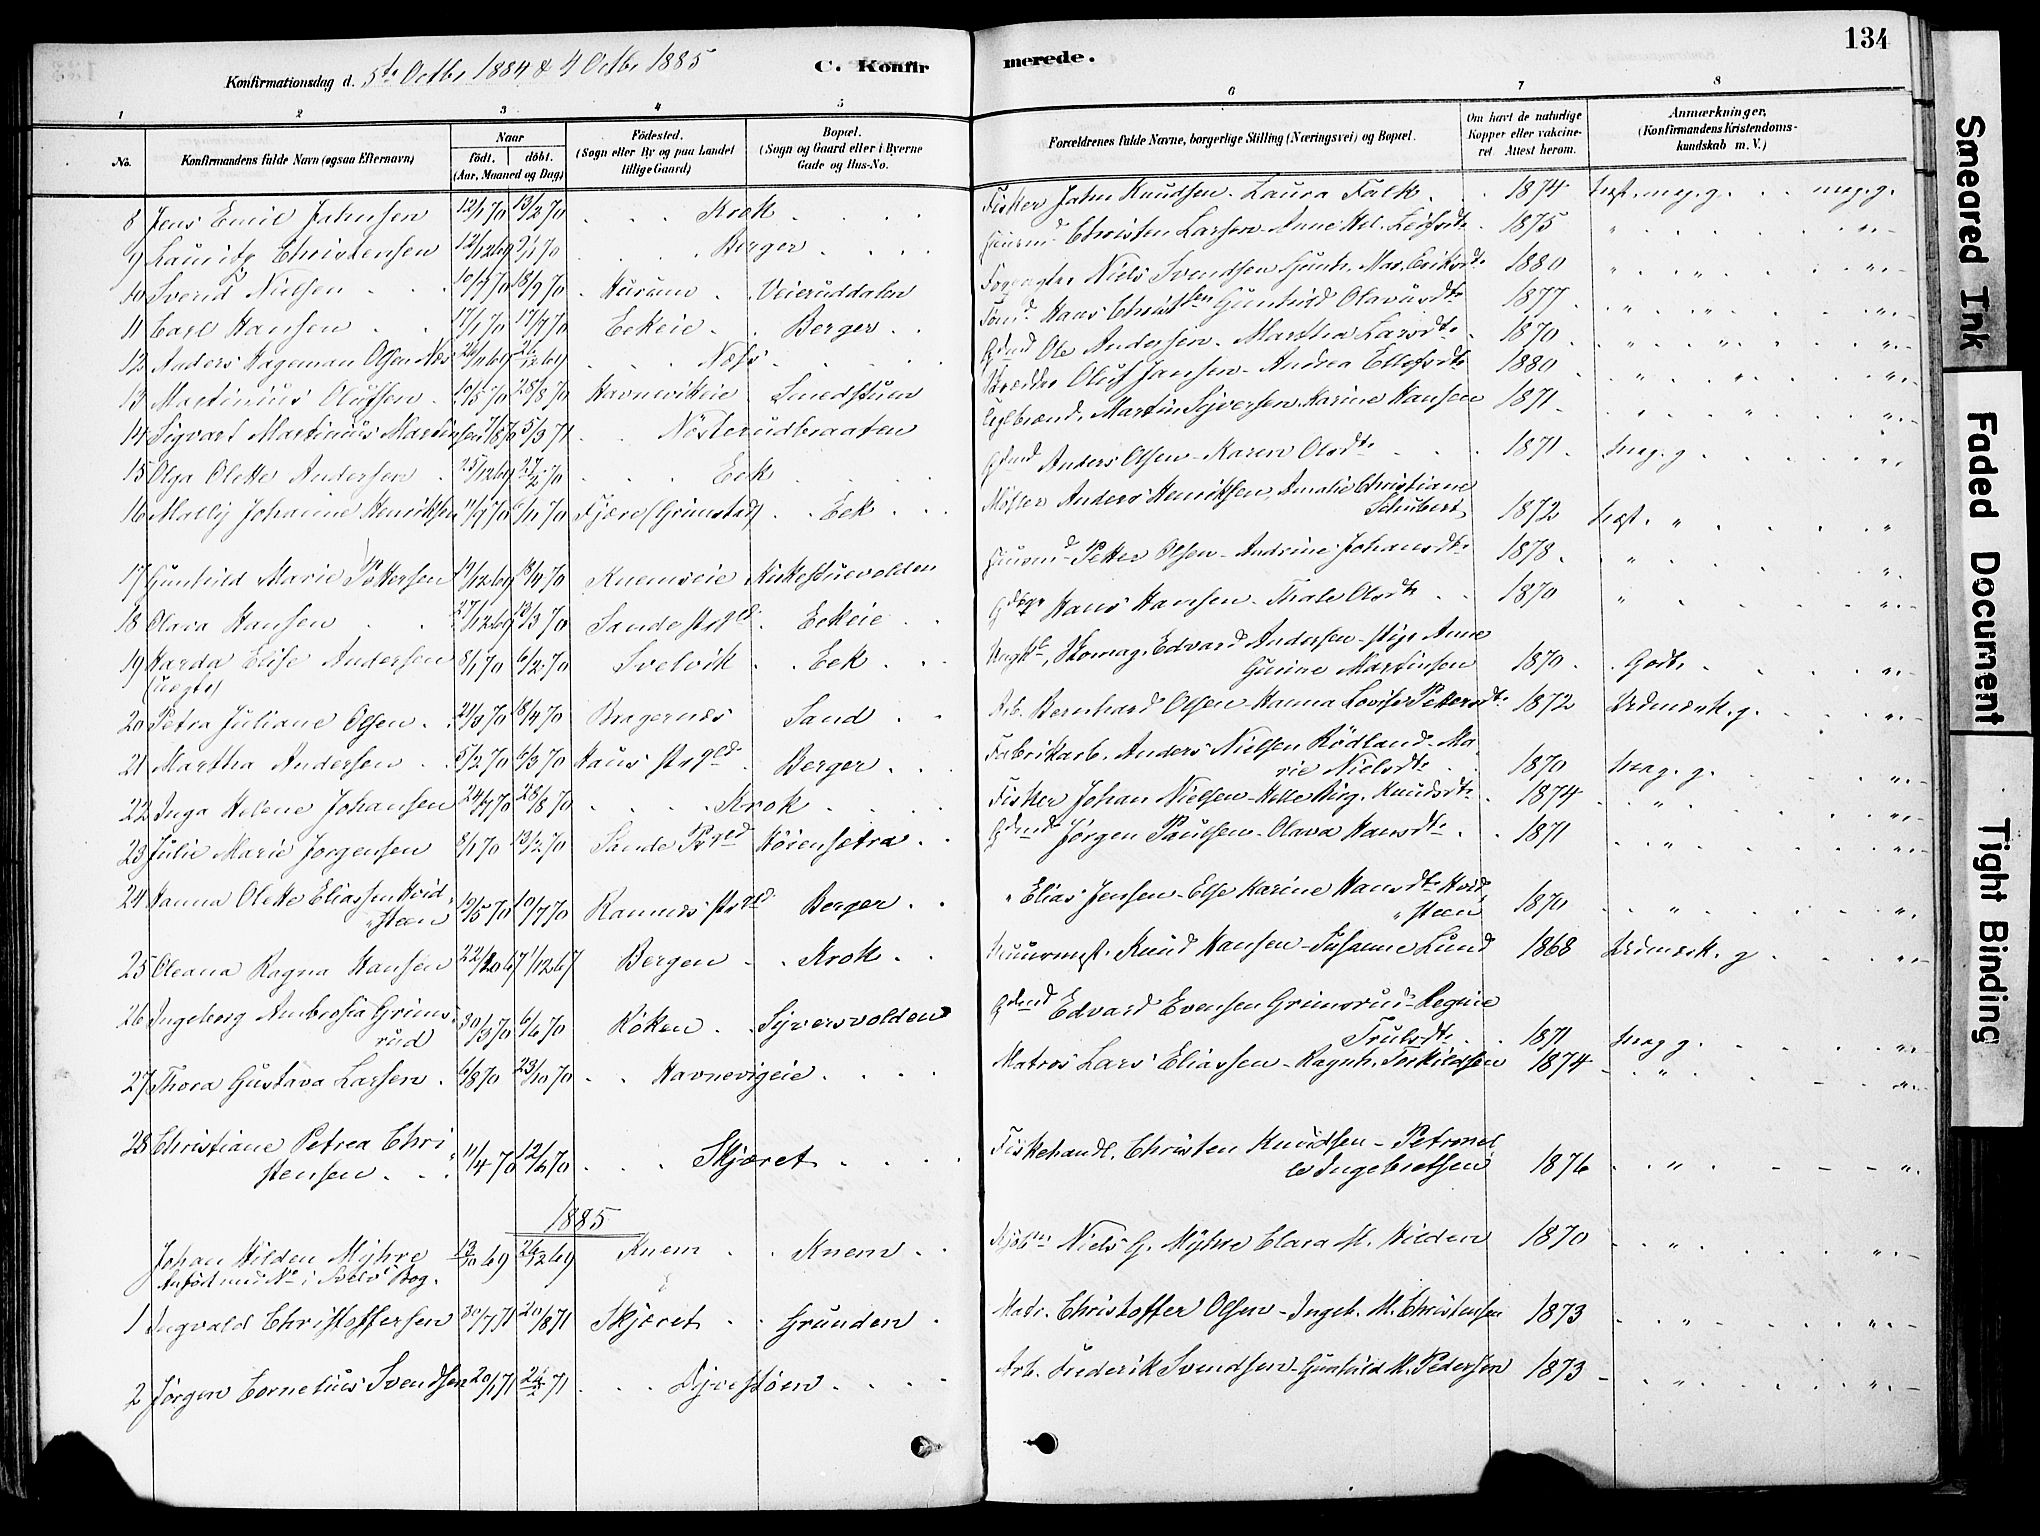 134
Konfirmationsdag d. 5te Octbr 1884 & 4 Octbr 1885 C. Konfirmerede.
1 2 3 4 5 6 7 8
No. Konfirmandens fulde Navn (ogsaa Efternavn) Naar födt. döbt. (Aar, Maaned og Dag) Födested. (Sogn eller By og paa Landet tillige Gaard) Bopæl. (Sogn og Gaard eller i Byerne Gade og Hus-No. Forældrenes fulde Navne, borgerlige Stilling (Næringsvei) og Bopæl. Om havt de naturlige Kopper eller vakcineret. Attest herom. Anmærkninger, (Konfirmandens Kristendomskundskab m. V.)
8 Jens Emil Jahnsen 12/1 70 13/2 70 Krok Fisker Jahn Knudsen - Laura Falk 1874 meg. g. meg. g.
9 Lauritz Christensen 12/12 69 2/1 70 Berger Christen Larsen - Anne Hel. Leifsdtr 1875 " "
10 Svend Nielsen 10/7 70 18/9 70 Hurum Veieruddalen Niels Svendsen Gunh. Mar. Eriksdtr 1880 " " "
11 Carl Hansen 17/1 70 17/7 70 Eekeie Berger Tømd Hans Christsen Gunhild Olavusdtr 1877 " " "
12 Anders Hageman Olsen Næs 26/12 69 Næss Gdmd Ole Andersen - Martha Larsdtr 1870 " " "
13 Martinius Olufsen 10/5 70 28/8 70 Havnevikeie Smedstuen Skrædder Oluf Jansen - Andrea Ellefsdtr 1880 " "
14 Sigvart Martinius Martinsen 7/8 70 5/3 71 Nösterudbraaten Martin Syversen Karine Hansen 1871 " "
15 Olga Olette Andersen 25/12 69 27/2 70 Eek Gdmd Anders Olsen - Karen Olsdtr 1871 meg. g. "
16 Mally Johanne Henriksen 11/9 70 6/11 70 Fjære (Grimstad) Eek Anders Henriksen, Amalie Christiane
Schubert 1872 " "
17 Gunhild Marie Pettersen 19/12 69 18/4 70 Knemseie Kirkestuevolden Huusmd Petter Olsen - Andrine Johansdtr 1878 " "
18 Olava Hansen 27/12 69 13/3 70 Sande prstgld Eekeie Hans Hansen - Thale Olsdtr 1870 " "
19 Harda Elise Andersen 8/1 70 6/2 70 Svelvik Eek Ungkl. Skomag. Edvard Andersen - pige Anne
(uægte) Gurine Martinsen 1870 Godt "
20 Petra Juliane Olsen 21/3 70 18/4 70 Bragernes Sand Arb. Bernhard Olsen - Hanna Lovise Pettersdtr 1872 Udmærk. g. "
21 Martha Andersen 5/2 70 6/3 70 Haus prgld Berger Fabrikarb. Anders Nielsen Rödland - Marie
Nielsdtr 1870 meg. g. "
22 Inga Helene Johansen 24/7 70 28/8 70 Krok Fisker Johan Nielsen - Helle Birg. Knudsdtr 1874 " "
23 Julie Marie Jørgensen 8/1 70 13/2 70 Sande Prgld Hörensetra Gdmd Jørgen Paulsen - Olava Hansdtr 1871 " "
24 Hanna Olette Eliassen Hvid-
steen 12/5 70 10/7 70 Ramnes prgld Berger " Elias Jensen - Else Karine Hansdtr Hvid-
steen 1870 " "
25 Oleana Ragna Hansen 22/10 67 1/12 67 Bergen Krok Knud Hansen - Susanne Lund 1868 Udmærk. g "
26 Ingeborg Ambrosia Grims-
rud 30/3 70 6/6 70 Röken Syversvolden Gdmd Edvard Evensen Grimsrud - Regine
Trulsdtr 1871 meg g. "
27 Thora Gustava Larsen 6/8 70 23/10 70 Havnevigeie Matros Lars Eliassen - Ragnh. Terkildsen 1874 " "
28 Christiane Petrea Chri-
stensen 11/4 70 12/6 70 Skjæret Fiskehandl. Christen Knudsen - Petronel-
le Ingebretsen 1876 " "
1885
Johan Hilden Myhre 13/10 69 26/12 69 Knem Knem Niels G. Myhre Clara M. Hilden 1870 " "
Anført med No i Svelv Bog.
1 Ingvald Christoffersen 30/7 71 20/8 71 Skjæret Grunden Matr. Christoffer Olsen - Ingeb. M. Christensen 1873 " "
2 Jörgen Cornelius Svendsen 20/1 71 71 Dyrestöen Arb. Frederik Svendsen - Gunhild M. Pedersen 1873 " "
Smeared Ink
Faded Document
Tight Binding